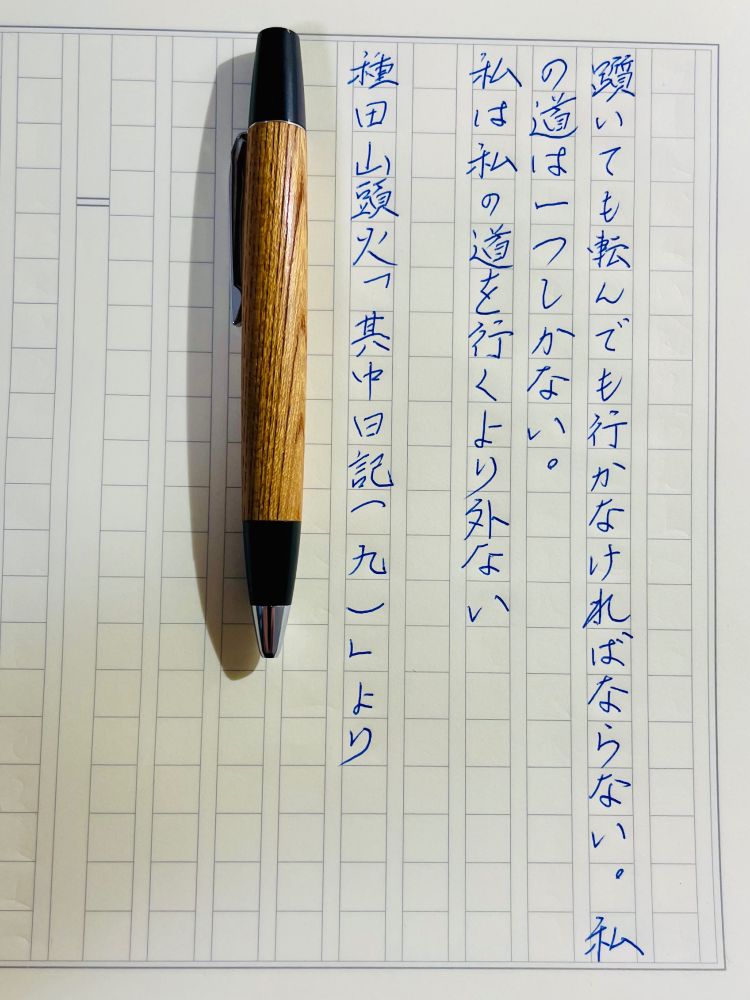 躓いても転んでも行かなければならない。 私
の道は一つしかない。
私は私の道を行くより外ない
種田山頭火「其中日記(九)」より